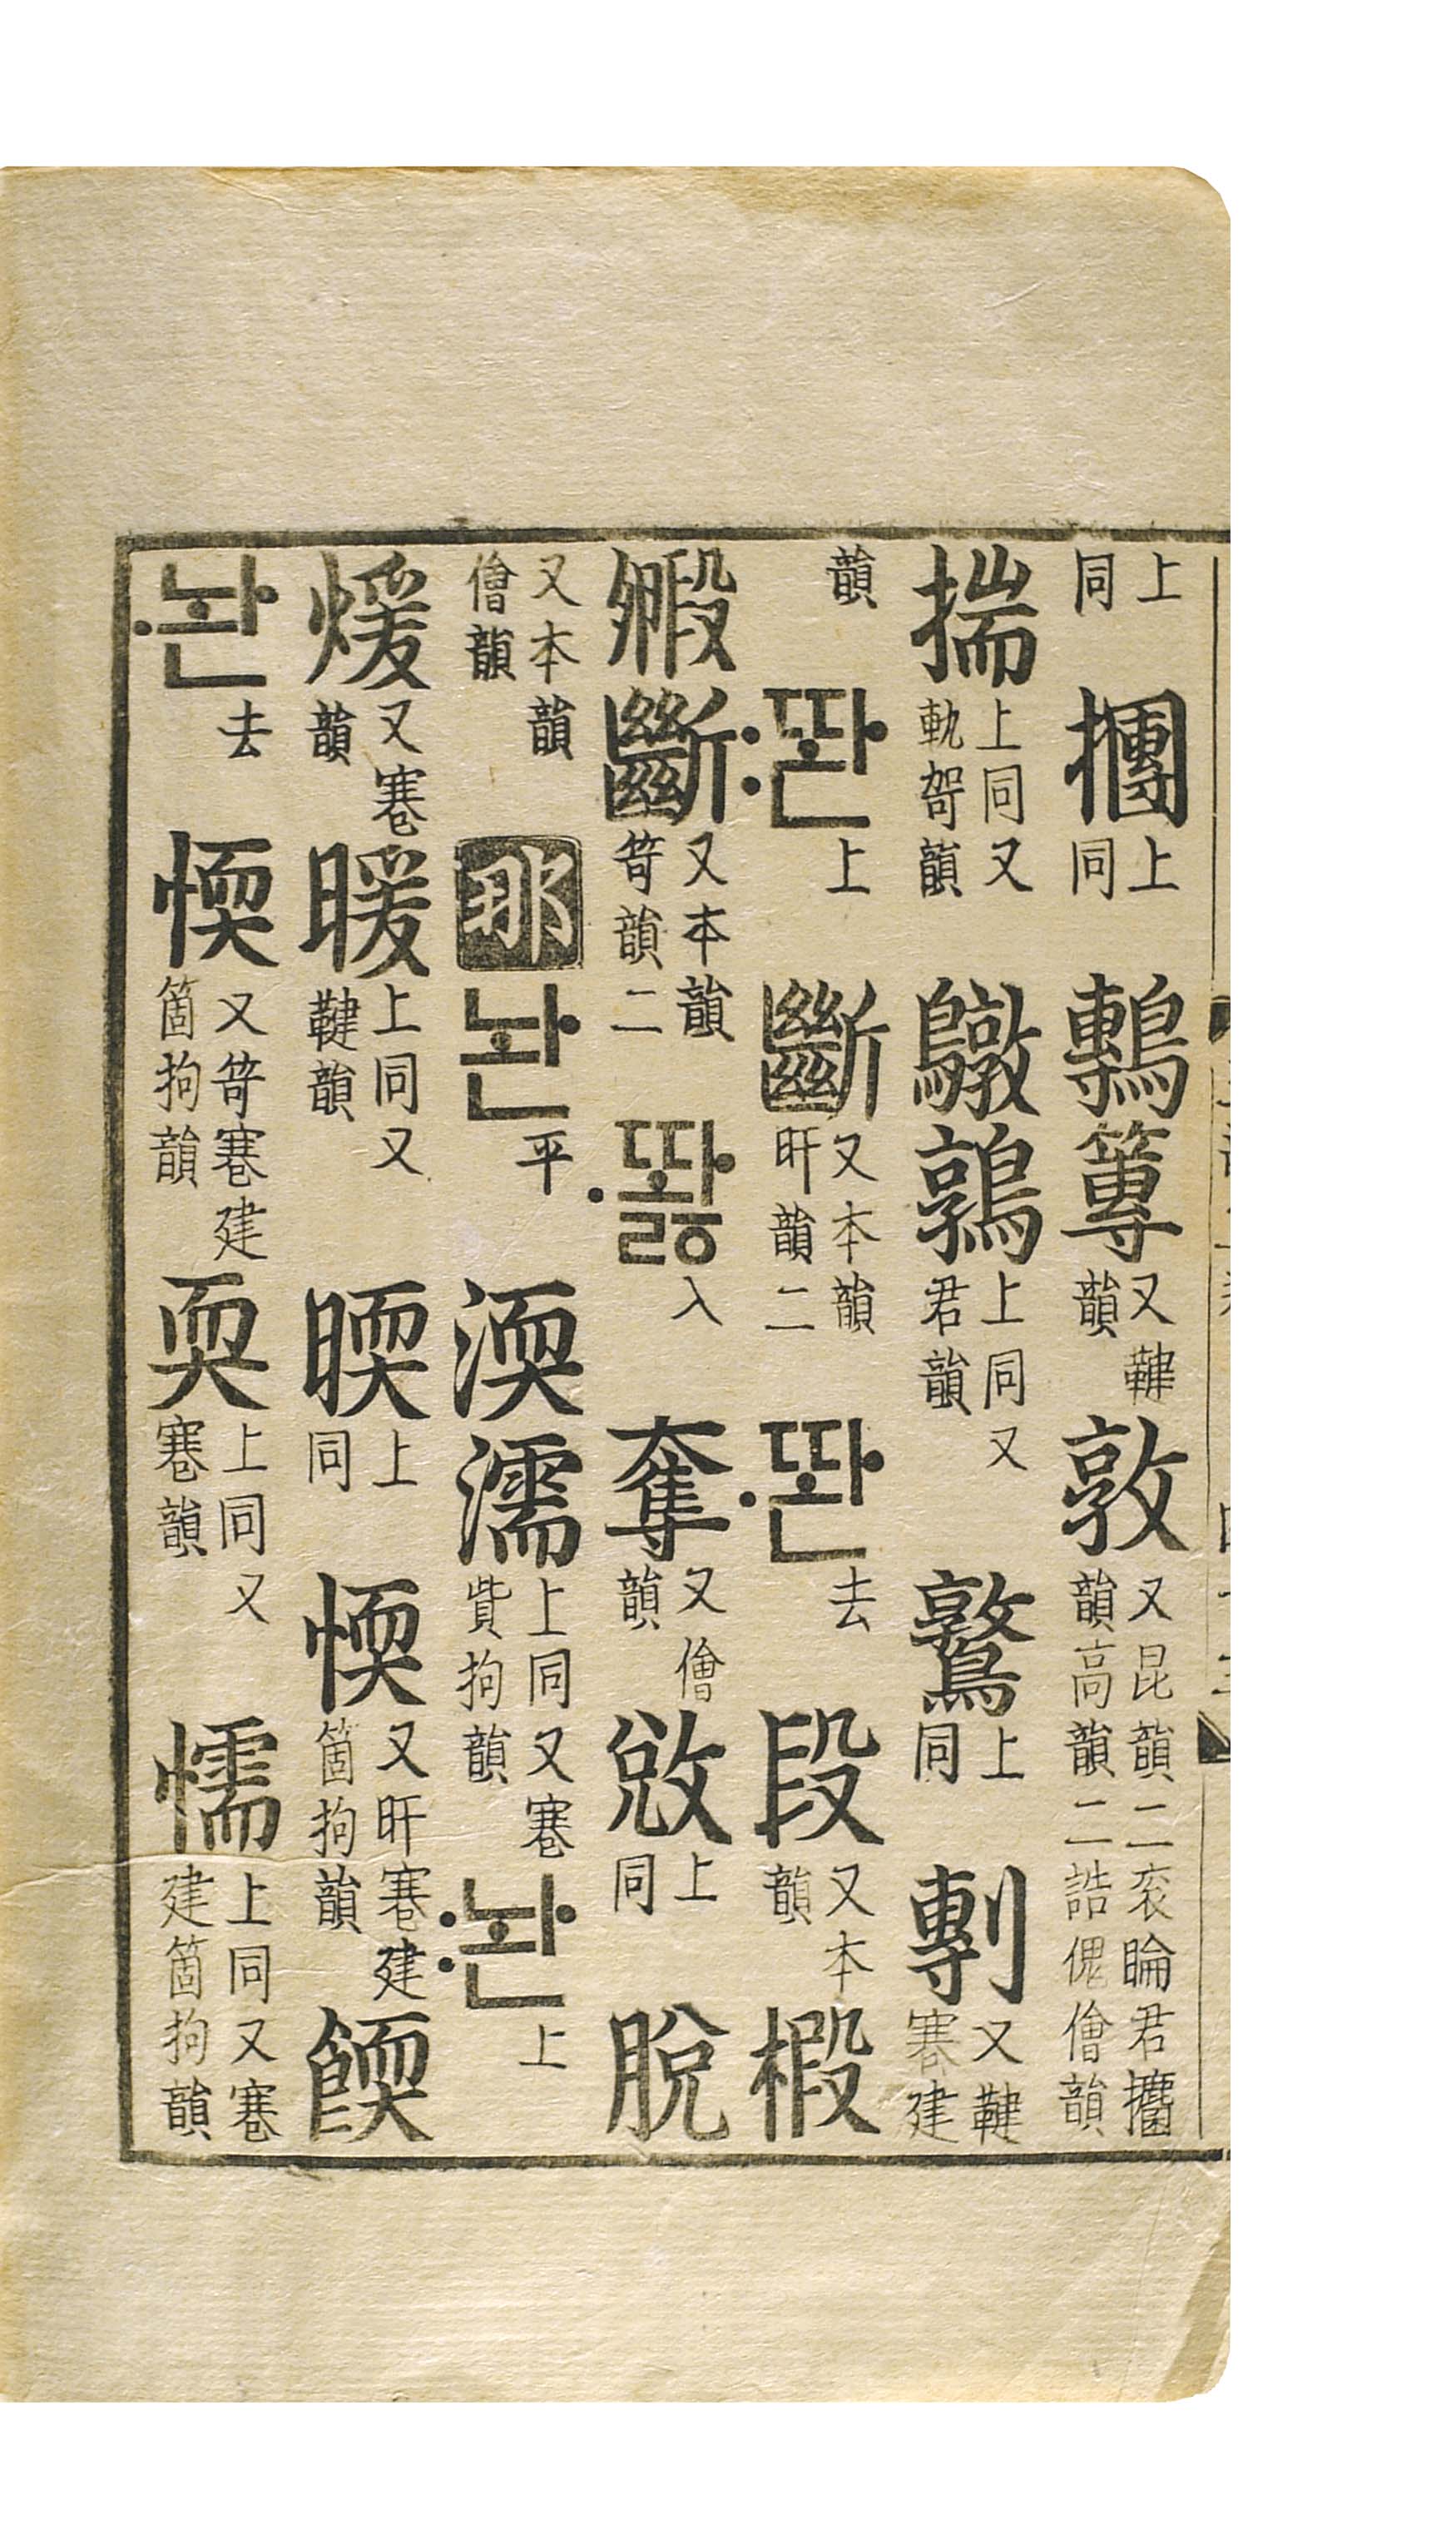 上同 上同 鷒 篿 又鞬韻 敦 又昆韻二袞睔君攟韻高韻二誥傀儈韻
揣 上同又軌哿韻 鷻 鶉 上同又君韻 上同 剸 又鞬寋建
韻 똰〯 上 斷 又本韻旰韻二 똰〮 去 段 又本韻 椴
毈 斷 又本韻笴韻二 똬ᇙ〮 入 奪 又儈韻 敓 上同 脫
又本韻儈韻 那 놘 平 渜 濡 上同又寋貲拘韻 놘〯 上
煖 又寋韻 暖 上同又鞬韻 㬉 上同 愞 又旰寋建箇拘韻 餪
놘〮 去 愞 又笴寋建箇拘韻 耎 上同又寋韻 懦 上同又寋建箇拘韻